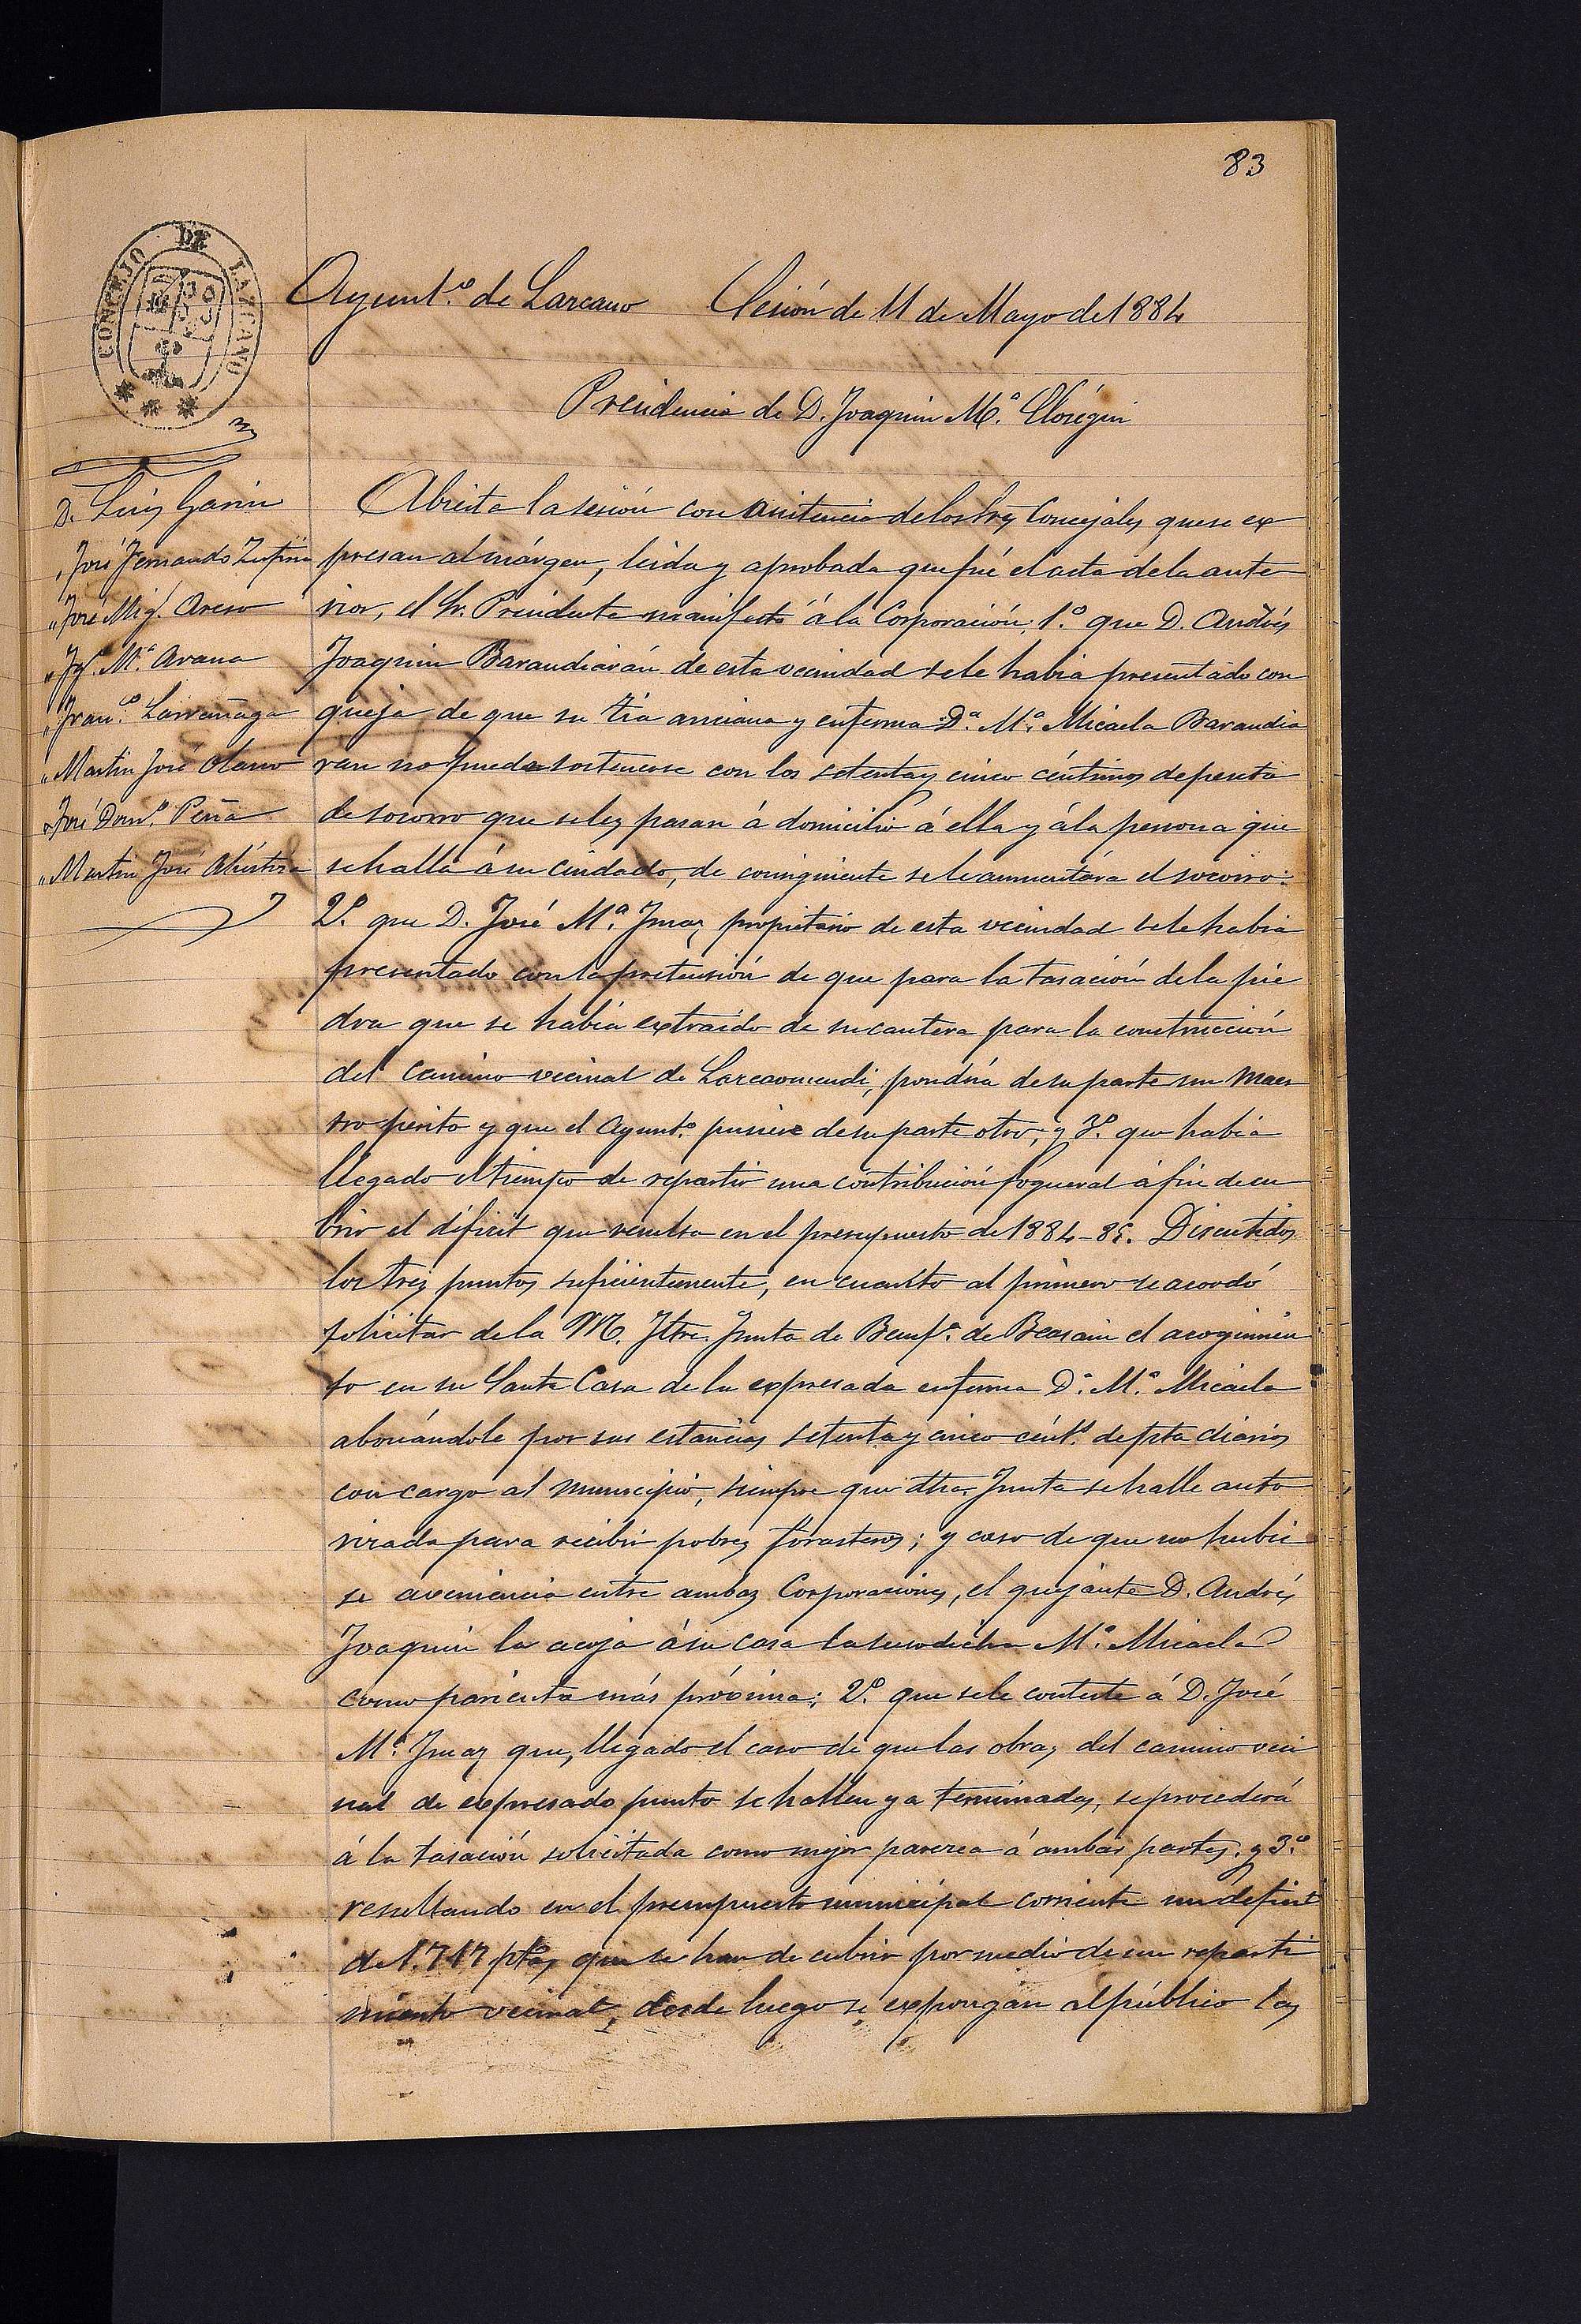 83
CONCEJO DE LAZCANO
Ayunt.º de Lazcano Sesión de 11 de Mayo de 1884
Presidencia de D. Joaquin M.ª Elorégui
D. Luis Garin
" José Fernando Zufiria
" José Mig.l Areso
" Ig.º M.ª Arana
" Fran.co Larrañaga
" Martin José Olano
" José Dom.º Peña
" Martin José Abústiza
Abierta la sesión con asistencia de los Srs Concejales que se ex
presan al márgen, leida y aprobada que fué el acta de la ante
rior, el Sr. Presidente manifestó á la Corporación: 1.º que D. Andrés
Joaquin Barandiarán de esta vecindad se le habia presentado con
queja de que su tia anciana y enferma D.ª M.ª Micaela Barandia
ran no puede sostenerse con los setenta y cinco céntimos de peseta
de socorro que se les pasan á domicilio á ella y á la persona que
se halla á su cuidado, de consiguiente se le aumentára el socorro:
2.º que D. José M.ª Imaz propietario de esta vecindad se le habia
presentado con la pretensión de que para la tasación de la pie
dra que se había extraido de su cantera para la construcción
del camino vecinal de Lazcaomendi, pondria de su parte un maes
tro perito y que el Ayunt.º pusiese de su parte otro; y 3.º que habia
llegado el tiempo de repartir una contribución fogueral á fin de cu
brir el déficit que resulta en el presupuesto de 1884-85. Discutidos
los tres puntos suficientemente, en cuanto al primero se acordó
solicitar de la M. Iltre. Junta de Benef.ª de Beasain el acogimien
to en su Santa Casa de la expresada enferma D.ª M.ª Micaela
abonándole por sus estancias setenta y cinco cént.s de pta diarios
con cargo al municipio, siempre que dha. Junta se halle auto
rizada para recibir pobres forasteros; y caso de que no hubie
se aveniencia entre ambas Corporaciones, el quejante D. Andrés
Joaquin la acoja á su casa la susodicha M.ª Micaela
como parienta más próxima; 2.º que se le conteste á D. José
M.ª Imaz que, llegado el caso de que las obras del camino veci
nal de expresado punto se hallen ya terminadas, se procederá
á la tasación solicitada como mejor parezca á ambas partes: y 3.º
resultando en el presupuesto municipal corriente un déficit
de 1.717 ptas, que se han de cubrir por medio de un reparti
miento vecinal, desde luego se expongan al público las